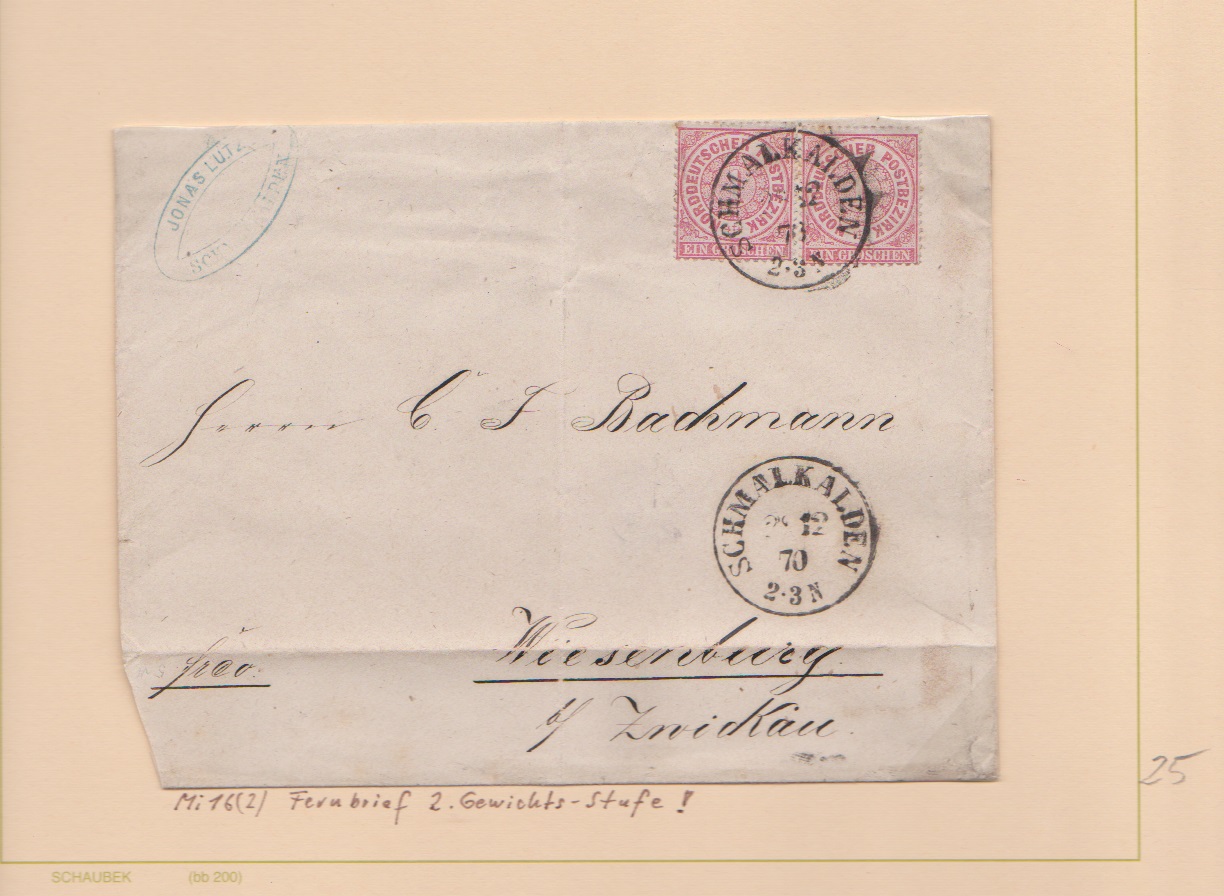 JONAS LUTZ
NORDDEUTSCHER POSTBEZIRK
EIN GROSCHEN
NORDDEUTSCHER POSTBEZIRK
EIN GROSCHEN
SCHMALKALDEN
12
2-3 N
Herrn C. F. Bachmann
SCHMALKALDEN
12
70
2-3 N
frco.
Wiesenburg
b/ Zwickau.
Mi 16(2) Fernbrief 2. Gewichts-Stufe !
25
SCHAUBEK (bb 200)